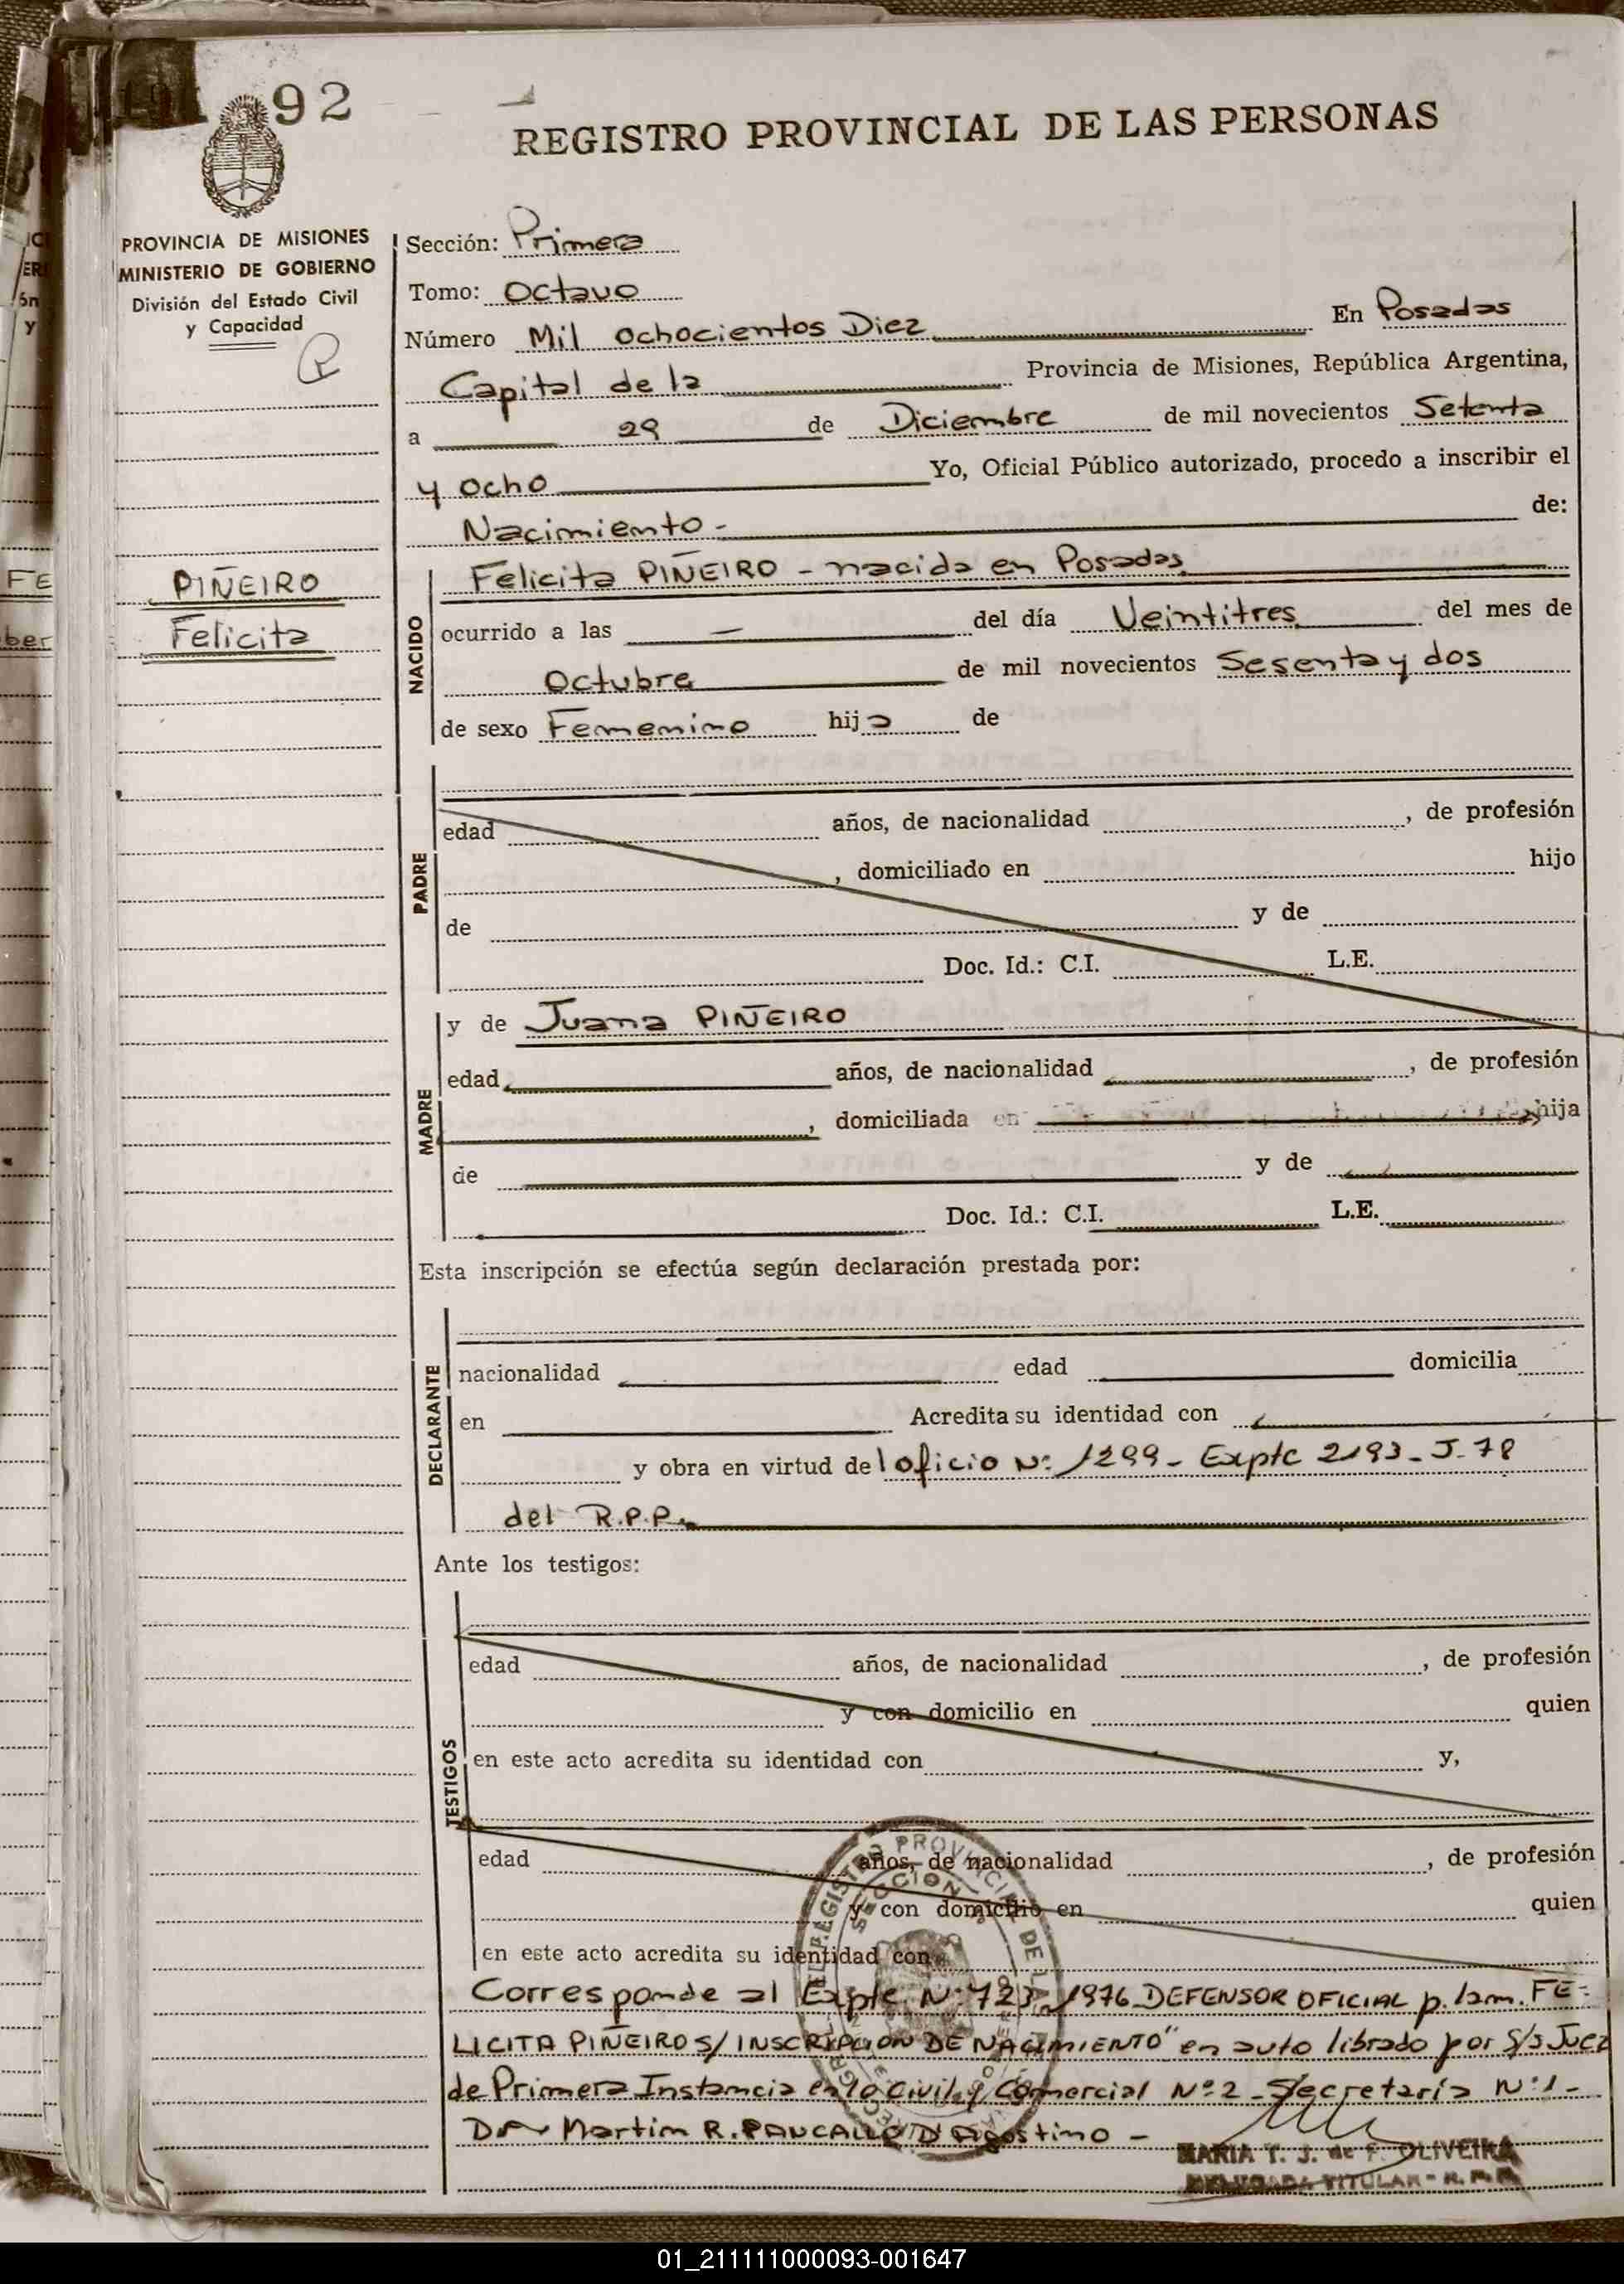 92
REGISTRO PROVINCIAL DE LAS PERSONAS
PROVINCIA DE MISIONES
MINISTERIO DE GOBIERNO
División del Estado Civil
y Capacidad
PIÑEIRO
Felicita
Sección: Primera
Tomo: Octavo
Número Mil ochocientos Diez En Posadas
Capital de la Provincia de Misiones, República Argentina,
a 29 de Diciembre de mil novecientos Setenta
y ocho Yo, Oficial Público autorizado, procedo a inscribir el
Nacimiento - de:
NACIDO
Felicita PIÑEIRO - nacida en Posadas
ocurrido a las — del día Veintitres del mes de
Octubre de mil novecientos Sesenta y dos
de sexo Femenino hija de
PADRE
edad años, de nacionalidad , de profesión
, domiciliado en hijo
de y de
Doc. Id.: C.I. L.E.
MADRE
y de Juana PIÑEIRO
edad años, de nacionalidad , de profesión
, domiciliada en hija
de y de
Doc. Id.: C.I. L.E.
Esta inscripción se efectúa según declaración prestada por:
DECLARANTE
nacionalidad edad domicilia
en Acredita su identidad con
y obra en virtud del oficio Nº 1299 - Expte 2193 - J - 78
del R.P.P.
Ante los testigos:
TESTIGOS
edad años, de nacionalidad , de profesión
y con domicilio en quien
en este acto acredita su identidad con y,
edad años, de nacionalidad , de profesión
y con domicilio en quien
en este acto acredita su identidad con
Corresponde al Expte Nº 723 1976 DEFENSOR OFICIAL p. la m. FE-
LICITA PIÑEIRO S/ INSCRIPCION DE NACIMIENTO" en auto librado por S/S Juez
de Primera Instancia en lo Civil y Comercial Nº 2 - Secretaría Nº 1 -
Dr Martin R. D'Agostino -
MARIA T. J. de F. OLIVEIRA
DELEGADA TITULAR - R. P. P.
01_211111000093-001647